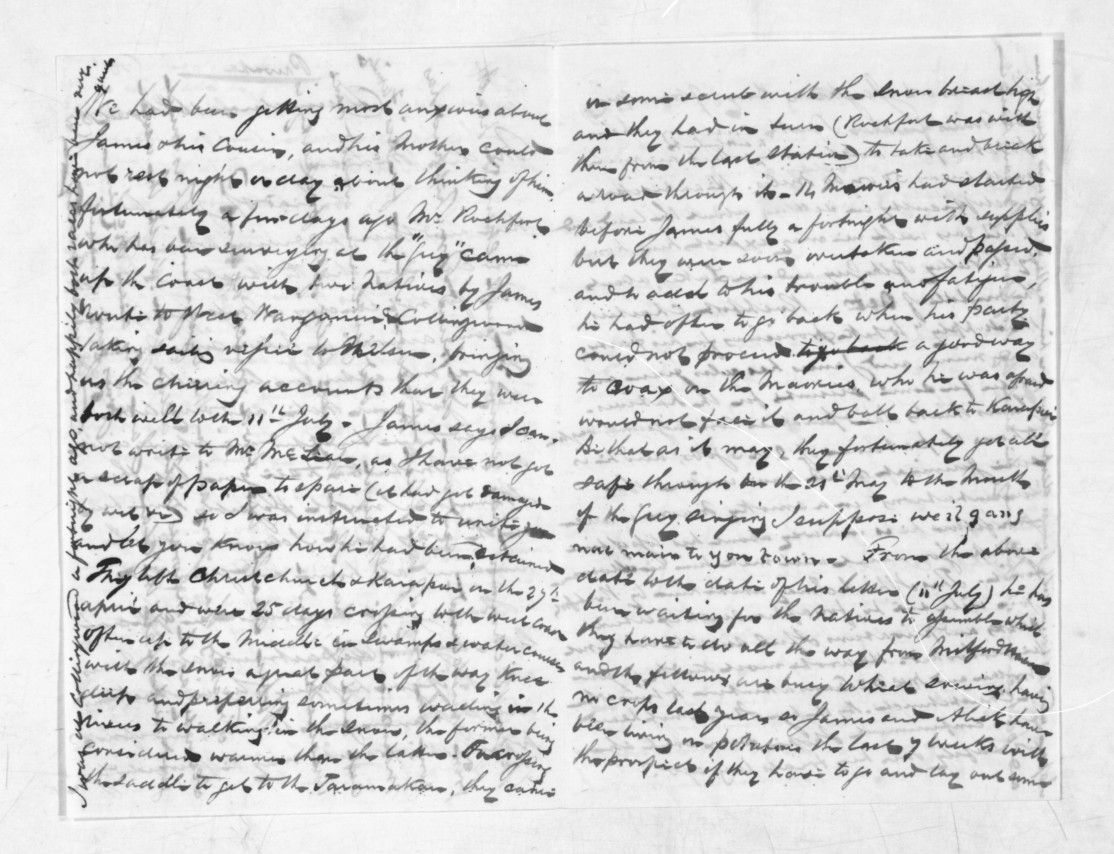 Private
We had been getting most anxious about
James & his Cousin, and his Mother could
not rest night or day about thinking of him
fortunately a few days ago Mr Rochfort
who has been surveying at the "Grey" came
up the Coast with two Natives by James
route to West Wanganui & Collingwood
taking sailing vessel to Nelson, bringing
us the cheering accounts that they were
both well to the 11th July. James says I can-
not write to Mr McLean, as I have not got
a scrap of paper to spare (it had got damaged
by wet &c) so I was instructed to write you
and let you know how he had been detained
They left Christchurch & Kaiapoi on the 29th
April and were 25 days crossing to the west coast
often up to the Middle in Swamps & water courses
with the snow a great part of the way Knee
deep and preferring sometimes wading in the
rivers to walking in the snow, the former being
considered warmer than the latter. In crossing
the saddle to get to the Taramakau, they came
I sent via Collingwood a fortnight ago, and supplies both reach him here six
in some scrub with the snow breast high
and they had in turn (Rochfort was with
them from the last station) to take and break
a road through it. 14 Maories had started
before James fully a fortnight with supplies
but they were soon overtaken and passed,
and to add to his trouble and fatigue,
he had often to go back when his party
could not proceed to go back a good way
to coax on the Maories, who he was afraid
would not face it and bolt back to Kaiapoi
Be that as it may, they fortunately got all
safe through on the 21st May to the Mouth
of the Grey singing I suppose we'll gang
nae mair to yon town. From the above
date to the date of his letter (11th July) he has
been waiting for the Natives to assemble which
they have to do all the way from Milford Haven
and the fellows are busy Wheat sowing having
no crops last year so James and Aleck have
been living on potatoes the last 7 weeks with
the prospect if they have to go and lay out some